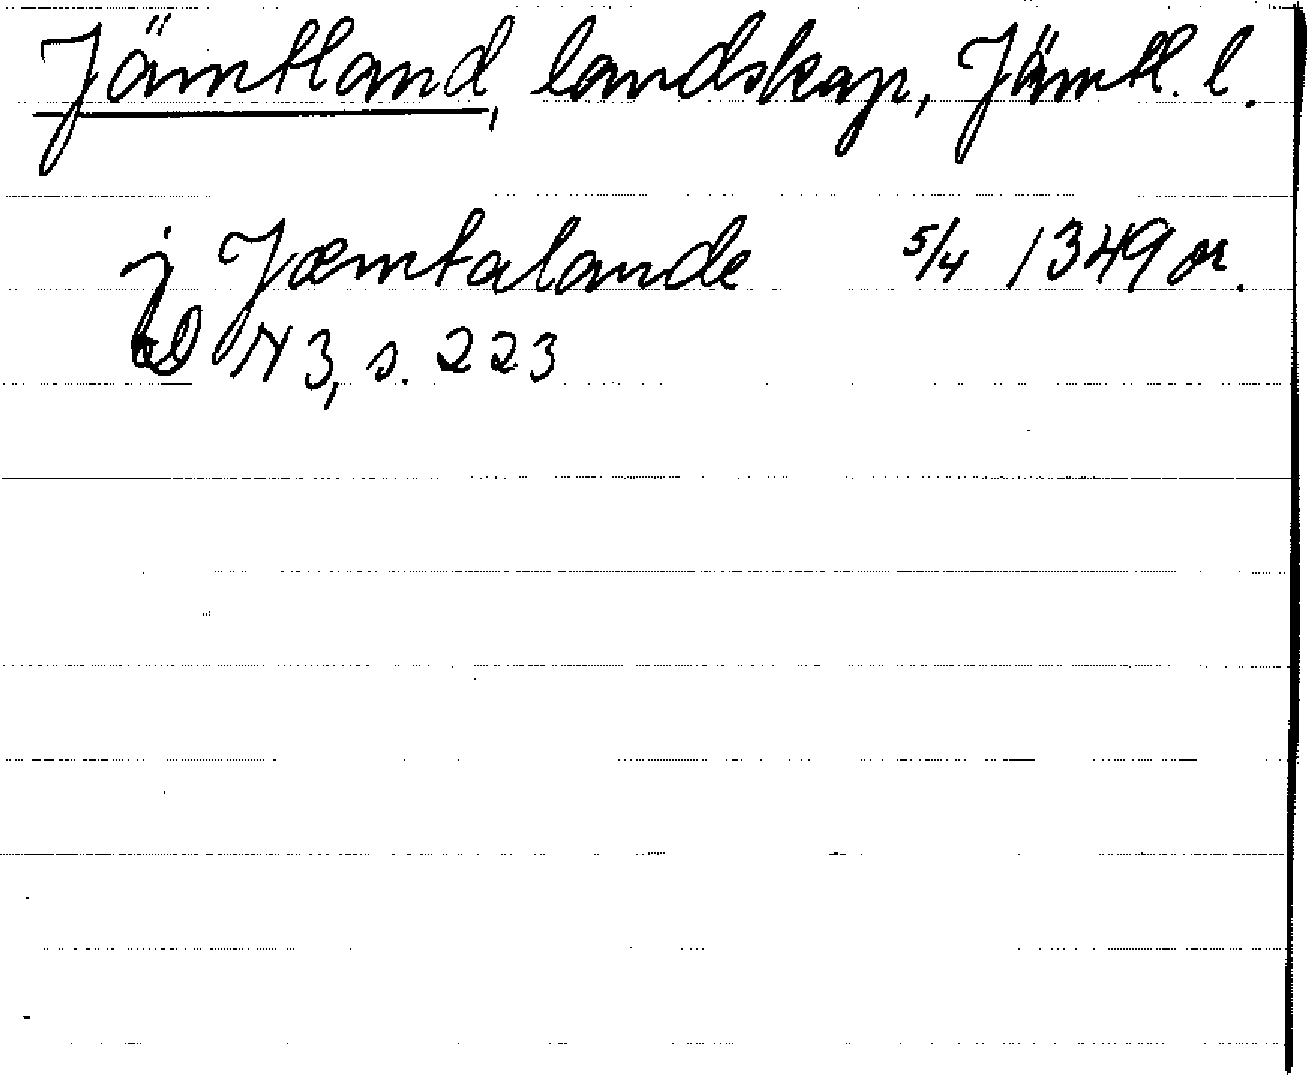 Jämtland, landskap, Jämtl. l.
j Jæmtalande 5/4 1349 or.
DN 3, s. 223